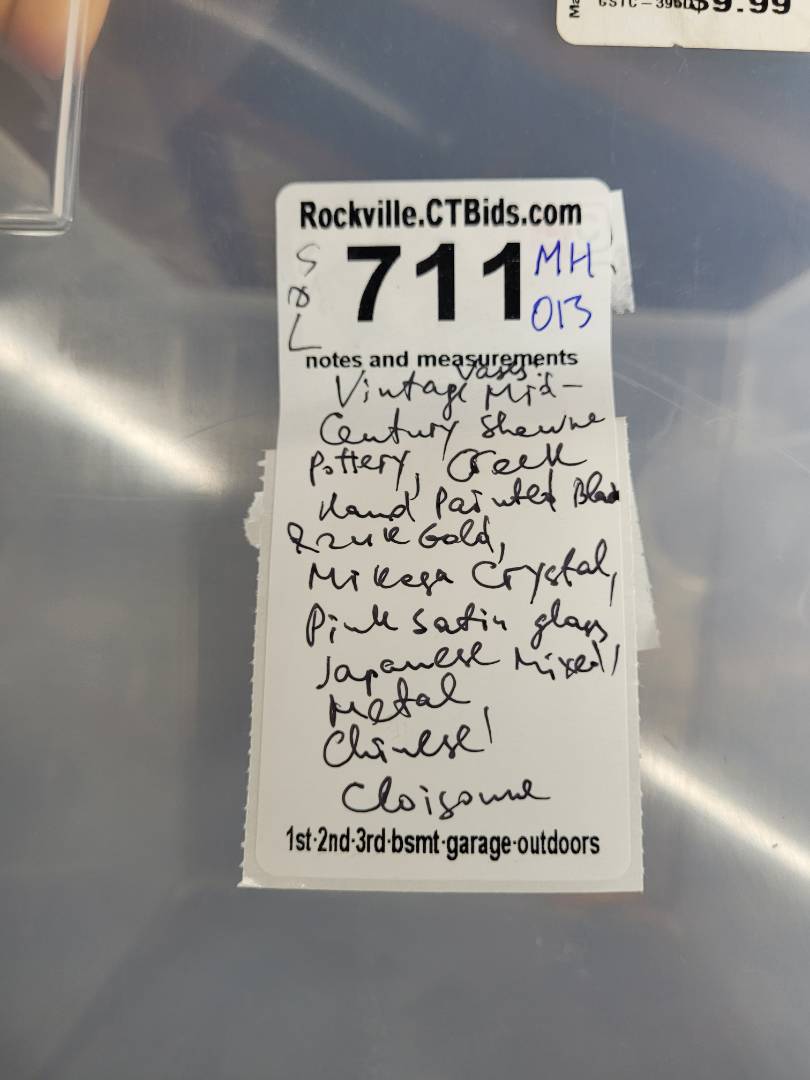 GSTC-3960
$9.99
Rockville.CTBids.com
711
MH
013
notes and measurements
Vases:
Vintage Mid-
Century Shawne
Pottery, Greek
Hand Painted Black
& 24K Gold,
Mikasa Crystal,
Pink satin glass,
Japanese Mixed
Metal,
Chinese
Cloisonne
1st·2nd·3rd·bsmt·garage·outdoors